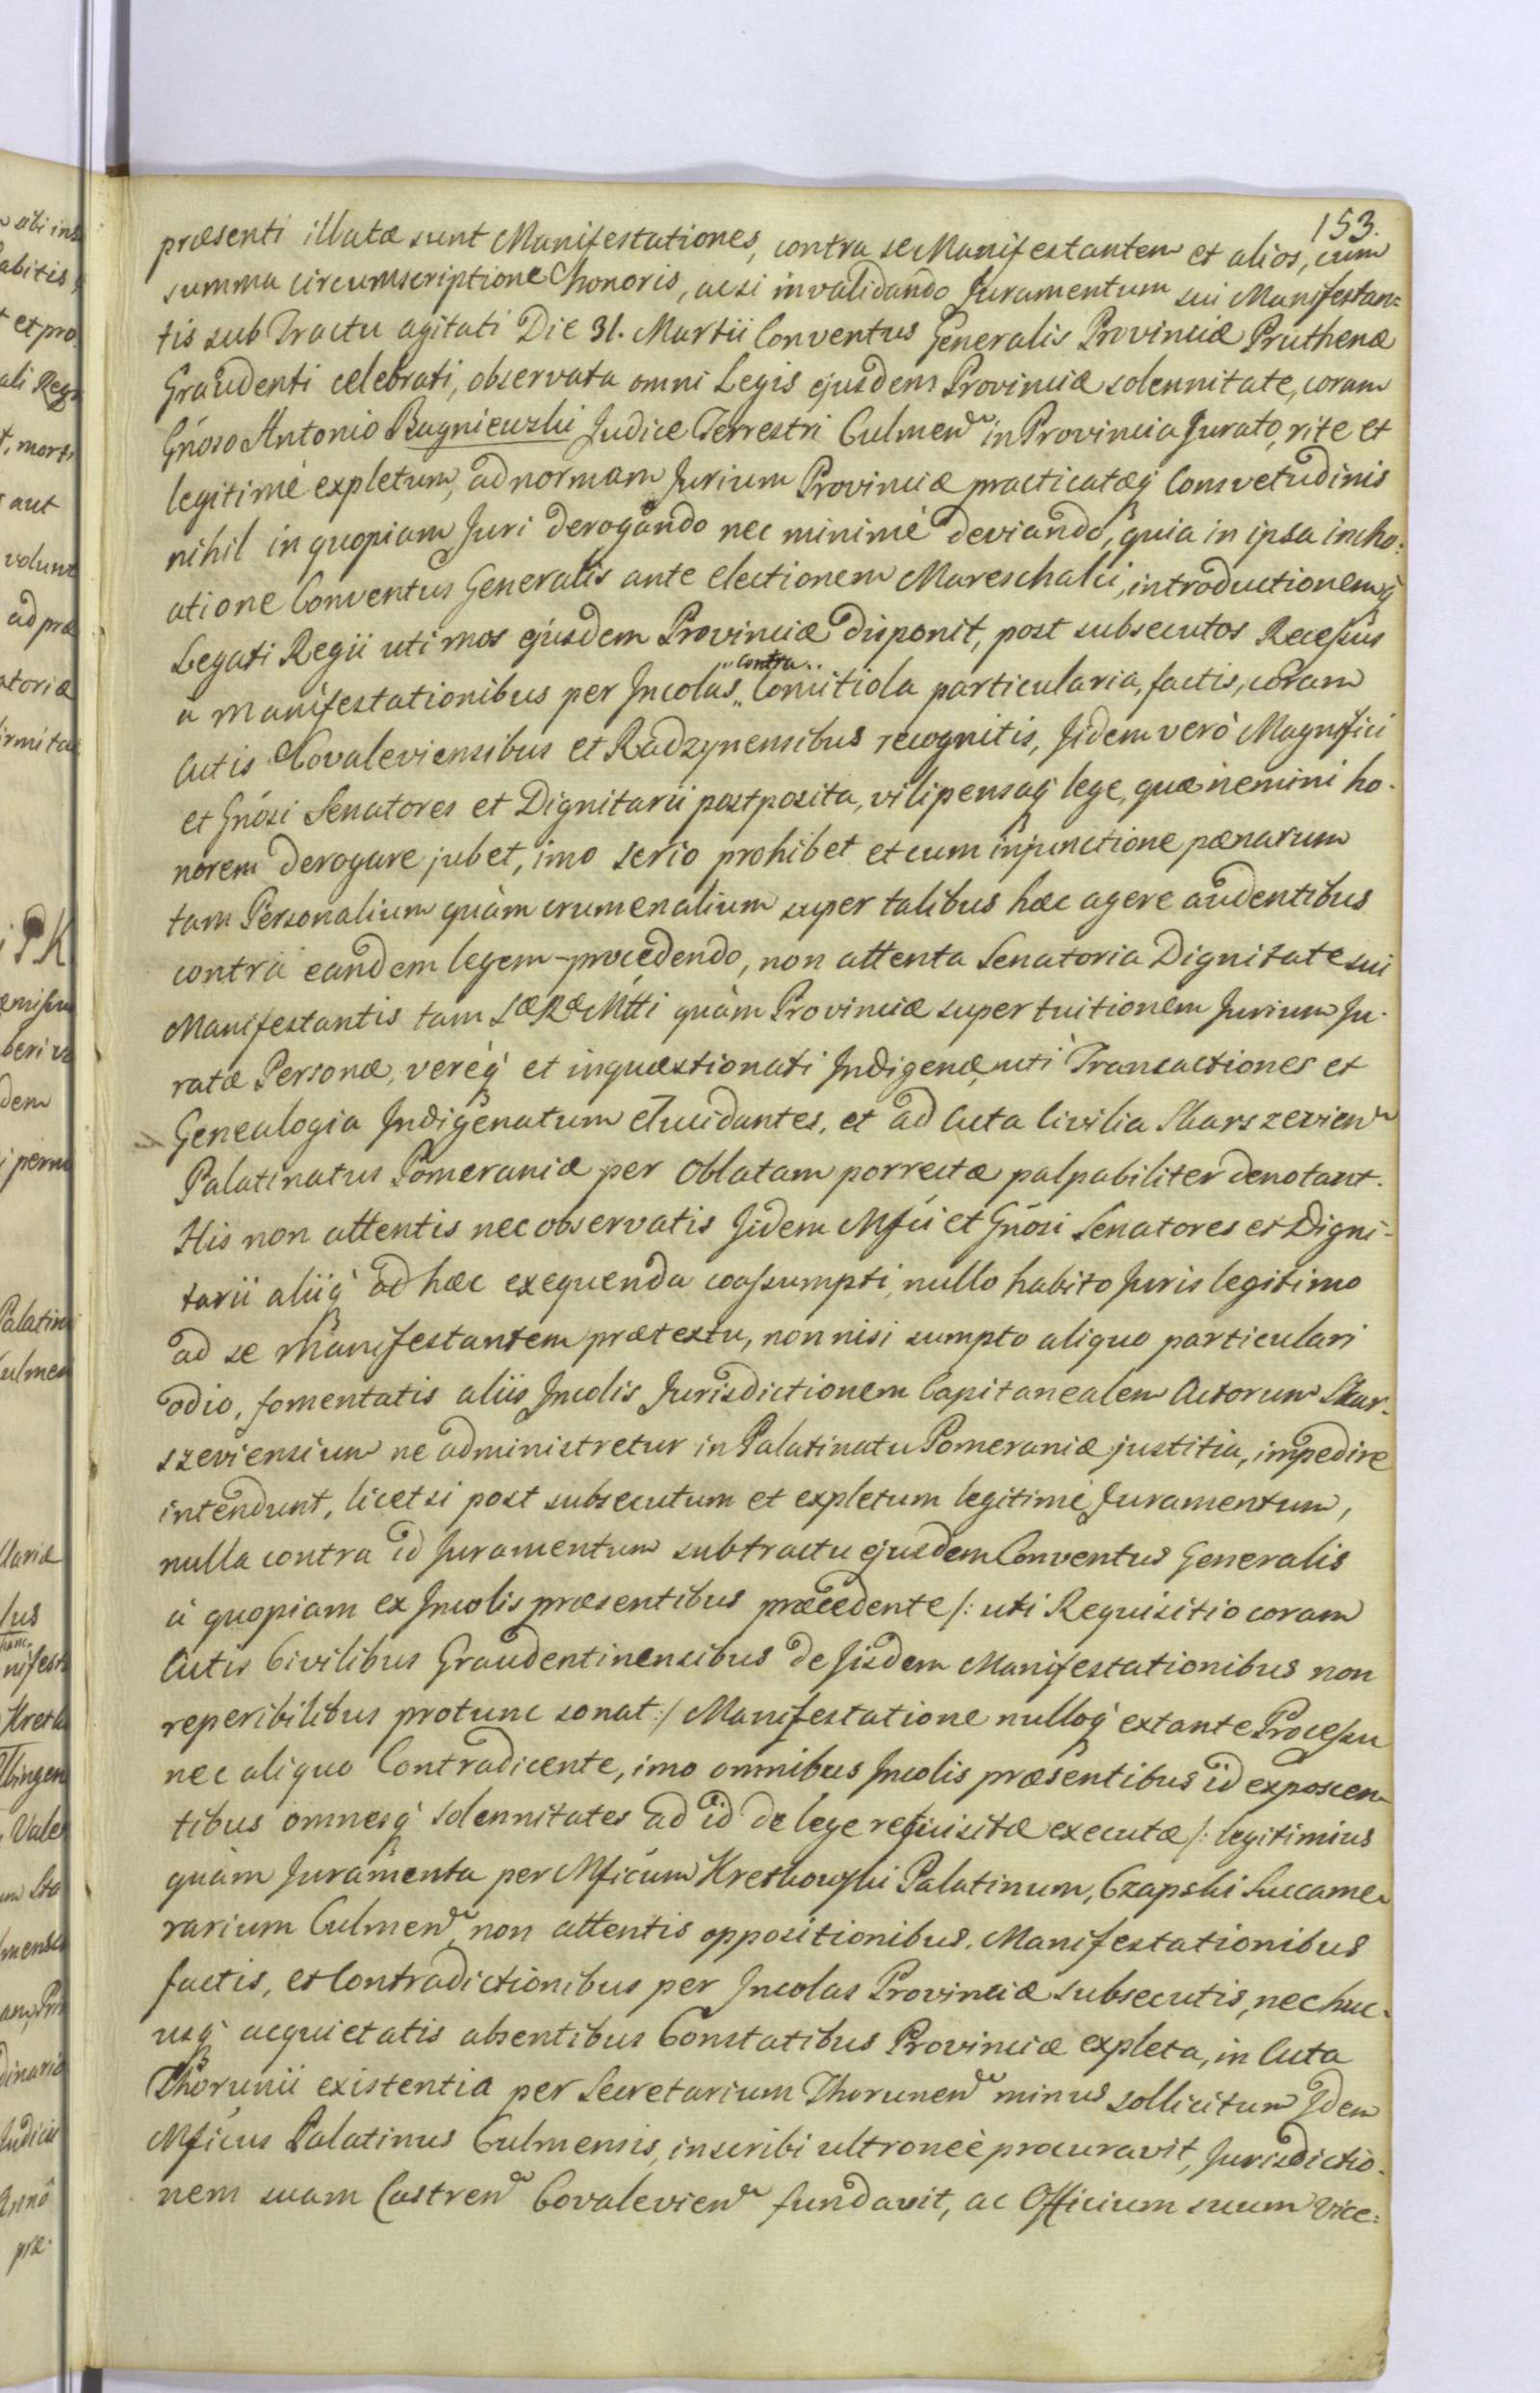 153.
præsenti illatæ sunt Manifestationes, contra se Manifestantem et alios, cum
summa circumscriptione honoris, acsi invalidando Juramentum sui Manifestan=
tis sub Tractu agitati Die 31. Martii Conventus Generalis Provinciæ Pruthenæ
Graudenti celebrati, observata omni Legis ejusdem Provinciæ solennitate, coram
Gńoso Antonio Bagniewski Judice Terrestri Culmen in Provincia Jurato, rite et
legitimè expletum, ad normam Jurium Provinciæ practicatæq Consvetudinis
nihil in quopiam Juri derogando nec minimè deviando, quia in ipsa incho=
atione Conventus Generalis ante electionem Mareschalci, introductionemq
Legati Regii uti mos ejusdem Provinciæ disponit, post subsecutos Recessus
a Manifestationibus per Incolas „contra„ Comitiola particularia, factis, coram
Actis Covaleviensibus et Radzynensibus recognitis, Jidem verò Magnifici
et Gńosi Senatores et Dignitarii postposita, vilipensaq lege, quæ nemini ho-
norem derogare jubet, imo serio prohibet et cum injunctione pænarum
tam Personalium quàm crumenalium super talibus hæc agere audentibus
contra eandem legem procedendo, non attenta Senatoria Dignitate sui
Manifestantis tam Sæ Ræ Mtti quàm Provinciæ super tuitionem Jurium Ju-
ratæ Personæ, verèq et inquæstionati Indigenæ, uti Transactiones et
Genealogia Indigenatum elucidantes, et ad Acta Civilia Skarszevien
Palatinatus Pomeraniæ per Oblatam porrectæ palpabiliter denotant.
His non attentis nec observatis Jidem Mfci et Gńosi Senatores et Digni-
tarii aliiq ad hæc exequenda coassumpti, nullo habito Juris legitimo
ad se Manifestantem prætextu, non nisi sumpto aliquo particulari
odio, fomentatis aliis Incolis Jurisdictionem Capitanealem Actorum Skar-
szeviensium ne administretur in Palatinatu Pomeraniæ justitia, impedire
intendunt, licetsi post subsecutum et expletum legitimè Juramentum,
nulla contra id Juramentum sub tractu ejusdem Conventus Generalis
à quopiam ex Incolis præsentibus præcedente /: uti Requisitio coram
Actis Civilibus Graudentinensibus de Jisdem Manifestationibus non
reperibilibus protunc sonat :/ Manifestatione nulloq extante Processu
nec aliquo Contradicente, imo omnibus Incolis præsentibus id exposcen
tibus omnesq solennitates ad id de lege requisitæ executæ /: legitimius
quàm Juramenta per Mficum Kretkowski Palatinum, Czapski Succame
rarium Culmen, non attentis oppositionibus, Manifestationibus
factis, et Contradictionibus per Incolas Provinciæ subsecutis, nec huc-
usq acquietatis absentibus Constatibus Provinciæ expleta, in Acta
Thorunii existentia per Secretarium Thorunen minus sollicitum Idem
Mficus Palatinus Culmensis, inscribi ultroneè procuravit, Jurisdictio-
nem suam Castren Covalevien fundavit, ac Officium suum Vice=